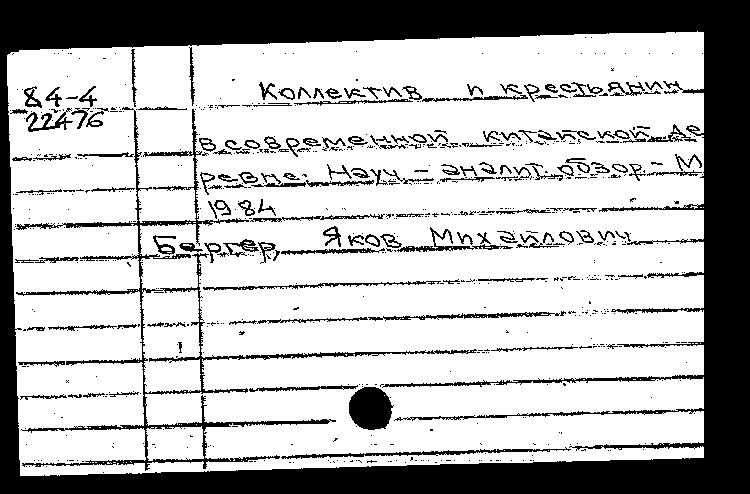 84-4
22476
Коллектив и крестьянин
в современной китайской де
ревне: Науч-аналит. обзор - М
1984
Бергер, Яков Михайлович